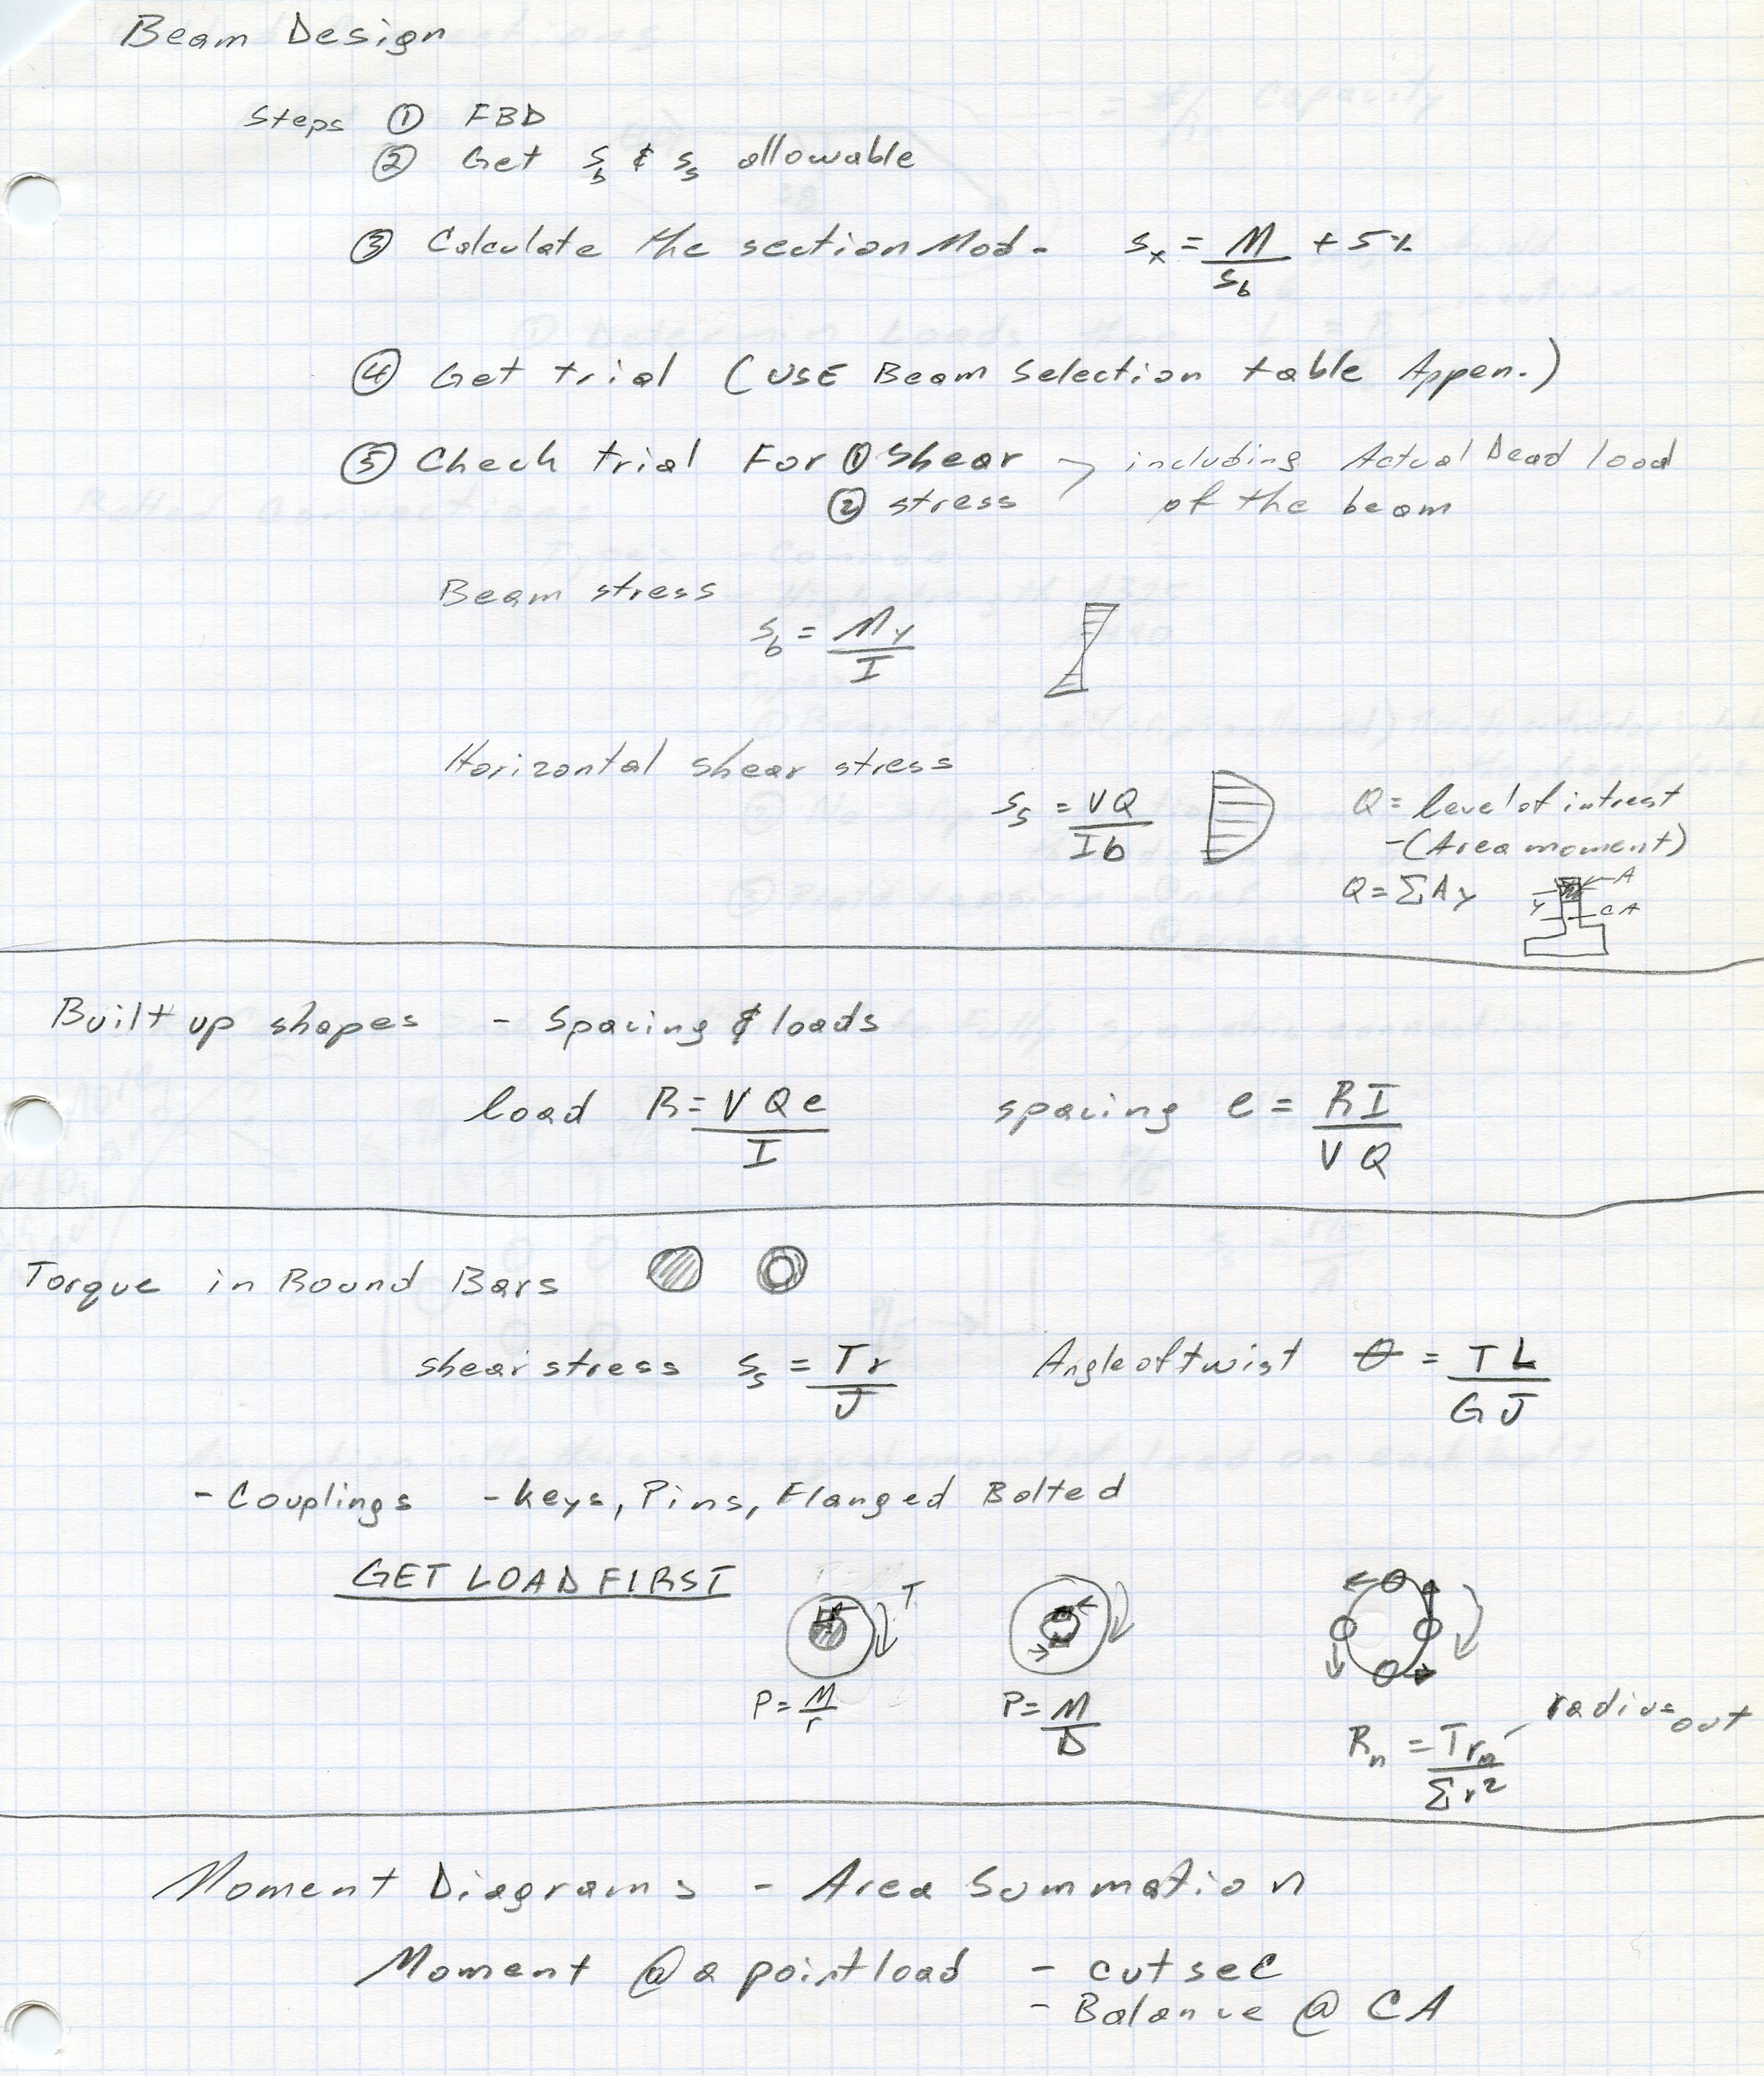 Beam Design
Steps ① FBD
② Get s_b & s_s allowable
③ Calculate the section Mod. s_x = M/s_b + 5%
④ Get trial (USE Beam Selection table Appen.)
⑤ Check trial For ① shear > including Actual Dead load
② stress of the beam
Beam stress
s_b = My/I
Horizontal shear stress
s_s = VQ/Ib
Q = level of intrest
-(Area moment)
Q = ΣAy
A
y
CA
Built up shapes - Spacing & loads
load R = VQe/I spacing e = RI/VQ
Torque in Round Bars
shear stress s_s = Tr/J Angle of twist θ = TL/GJ
- Couplings - keys, Pins, Flanged Bolted
GET LOAD FIRST
T
P = M/r P = M/D
R_n = Tr_n/Σr² radius out
Moment Diagrams - Area Summation
Moment @ a point load - cut sec
- Balance @ CA